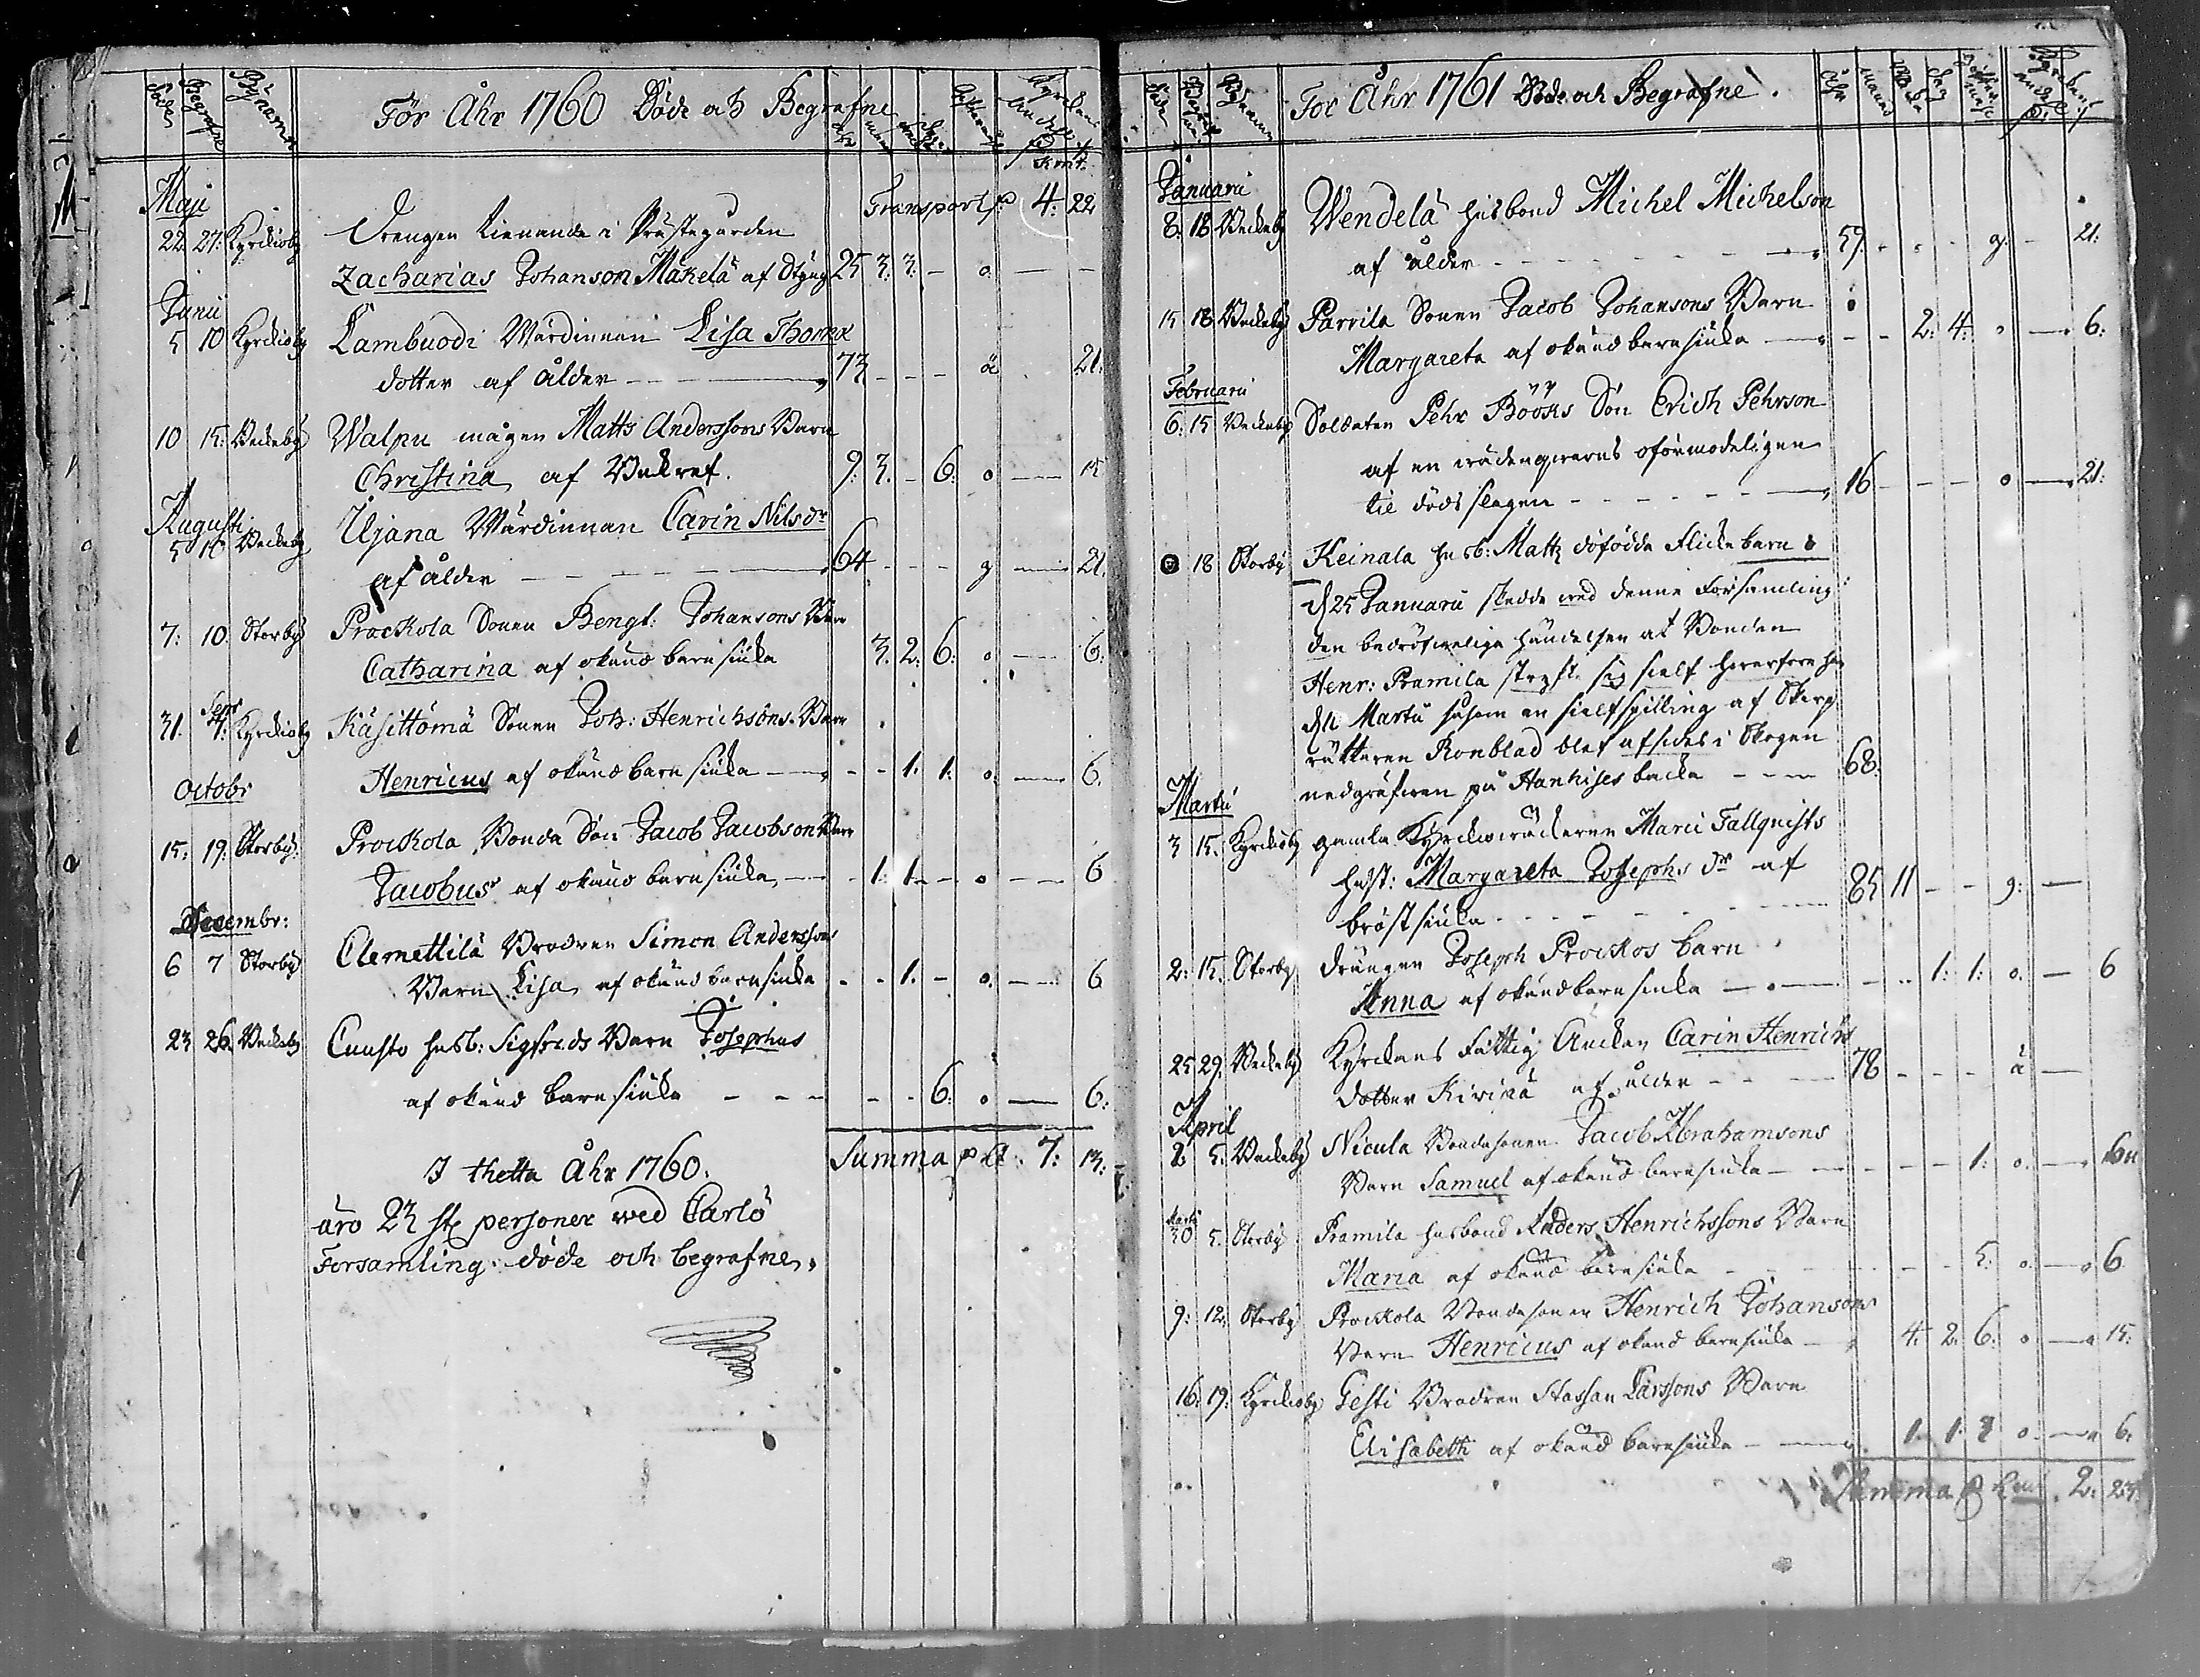 Döde Begrafne Bynamn För Åhr 1760 Döde och Begrafne
Transport p 4: 22
Maji
22 27: Kyrckioby Drengen tienande i Prästegården
Zacharias Johanson Mäkelä af 25 3. 3. – o. – –
Junii
5 10 Kyrckioby Lambuodi Wärdinnan Lisa Thomæ
dotter af ålder 73 – – – ä 21.
10 15: Veckeby Walpu mågen Matts Anderssons Barn
Christina af 9: 3. – 6: o – 15
Augusti
5 10 Veckeby Ujana Wärdinnan Carin Nilsdr
af ålder 64 – – – g – 21.
7: 10. Storby Prockola Sonen Bengt: Johansons Barn
Catharina af okänd barnsiuka 3. 2: 6: o – 6:
Sepr
31. 4: Kyrckioby Käsittömä Sonen Joh: Henrichsons Barn
Henricus af okänd barnsiuka – – 1: 1: o: – 6.
Octobr
15: 19: Storby: Prockola Bonda Son Jacob Jacobson Barn
Jacobus af okänd barnsiuka – 1: 1. – o – 6
Decembr:
6 7 Storby Clemettilä Brodren Simon Anderssons
Barn Lisa af okänd barnsiuka – – 1. – o. – 6
23 26. Veckeby Cunsto husb: Sigfreds Barn Josephus
af okänd barnsiuka – – – – – 6: o – 6:
Summa p 7: 13:
I thetta Åhr 1760.
äro 23 st personer wed Carlö
Forsamling: döde och begrafne.
För Åhr 1761 Döde och Begrafne.
Januarii
8: 18 Veckeby Wendelä husbond Michel Michelson
af ålder 59. – – – g: – 21:
15 18 Veckeby Parrila Sonen Jacob Johansons Barn
Margareta af okänd barnsiuka – – 2: 4: o – 6:
Februarii
6: 15 Veckeby Soldaten Pehr Bööks Son Erich Pehrson
af en oförmodeligen
til döds slagen 16 – – – o – 21:
18 Storby Keinala husb: Matts döfödda flicke barn
d 25 Januarii skedde wed denne Forsamling
den bedröfwelige händelsen at Bonden
Henr: Pramila sig sielf
d 11 Martii såsom en sielfspilling af Skarp
rättaren Ronblad blef afsides i Skogen
nedgrafwen på Hanhises backa – – – 68:
Martii
3 15. Kyrckioby gamla Kyrckiowäckaren Marci Fallqvists
hust: Margareta Josephs dr af
bröst siuka 85 11 – – g: –
2: 15. Storby drängen Joseph Prockos barn
Anna af okänd barnsiuka – – 1: 1: o. – 6
25 29. Veckeby Kyrckans Fattig Änckan Carin Henrichs
dotter Kivirä af ålder – – – 78 – – – ä –
April
2 5. Veckeby Nicula Bondesonen Jacob Abrahamsons
Barn Samuel af okänd barnsiuka – – – – 1: o. – 6
Martii
30 5. Storby Pramila husbond Anders Henrichssons Barn
Maria af okänd barnsiuka – – – 5: o. – 6
9: 12. Storby Prockola Bondesonen Henrich Johansons
Barn Henricus af okänd barnsiuka – 4: 2: 6: o – 15:
16: 19: Kyrckioby Gesti Brodren Stassan Larssons Barn
Elisabeth af okänd barnsiuka – 1. 1. o. – 6.
Summa 2: 23: